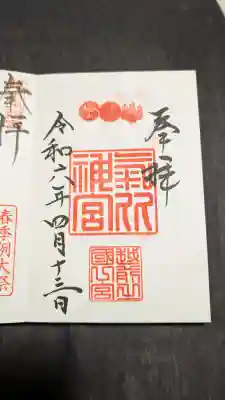 奉拝
氣比神宮
令和六年四月十三日
奉拝
春季例大祭